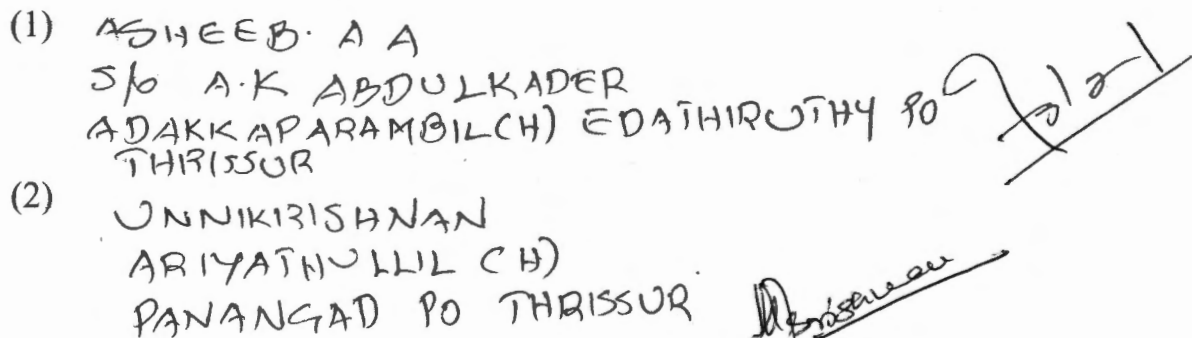 (1) ASHEEB. A A
S/o A.K ABDULKADER
ADAKKAPARAMBIL(H) EDATHIRUTHY PO
THRISSUR
(2) UNNIKRISHNAN
ARIYATHULLIL (H)
PANANGAD PO THRISSUR